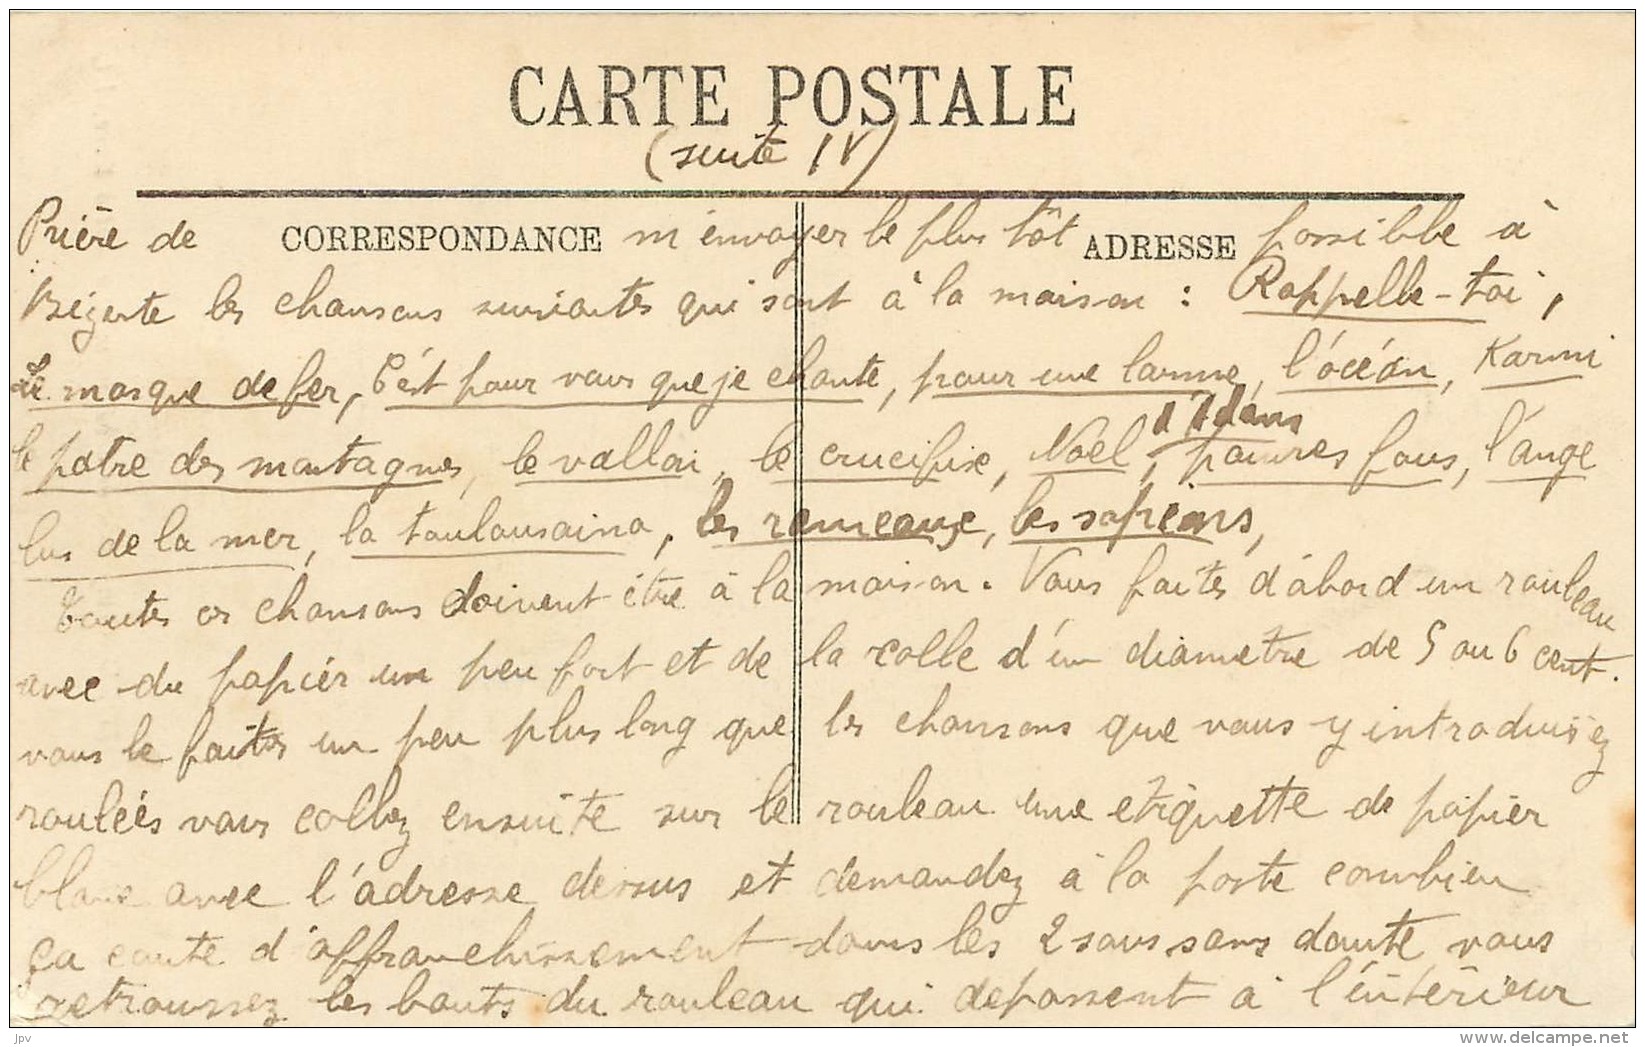 CARTE POSTALE
(suite IV)
Prière de CORRESPONDANCE m'envoyer le plus tôt ADRESSE possible à
Bizerte les chansons suivantes qui sont à la maison : Rappelle-toi,
Le masque de fer, C'est pour vous que je chante, pour une larme, l'océan, Karmi
le patre des montagnes, le vallon, le crucifixe, Noël d'Adam, pauvres fous, l'ange
lus de la mer, la toulousaina, les rameaux, les sapins,
Toutes ces chansons doivent être à la maison. Vous faites d'abord un rouleau
avec du papier un peu fort et de la colle d'un diamètre de 5 ou 6 cent.
vous le faites un peu plus long que les chansons que vous y introduisez
roulées vous collez ensuite sur le rouleau une etiquette de papier
blanc avec l'adresse dessus et demandez à la poste combien
ça coute d'affranchissement dans les 2 sous sans doute vous
retroussez les bouts du rouleau qui depassent à l'intérieur
jpv
www.delcampe.net